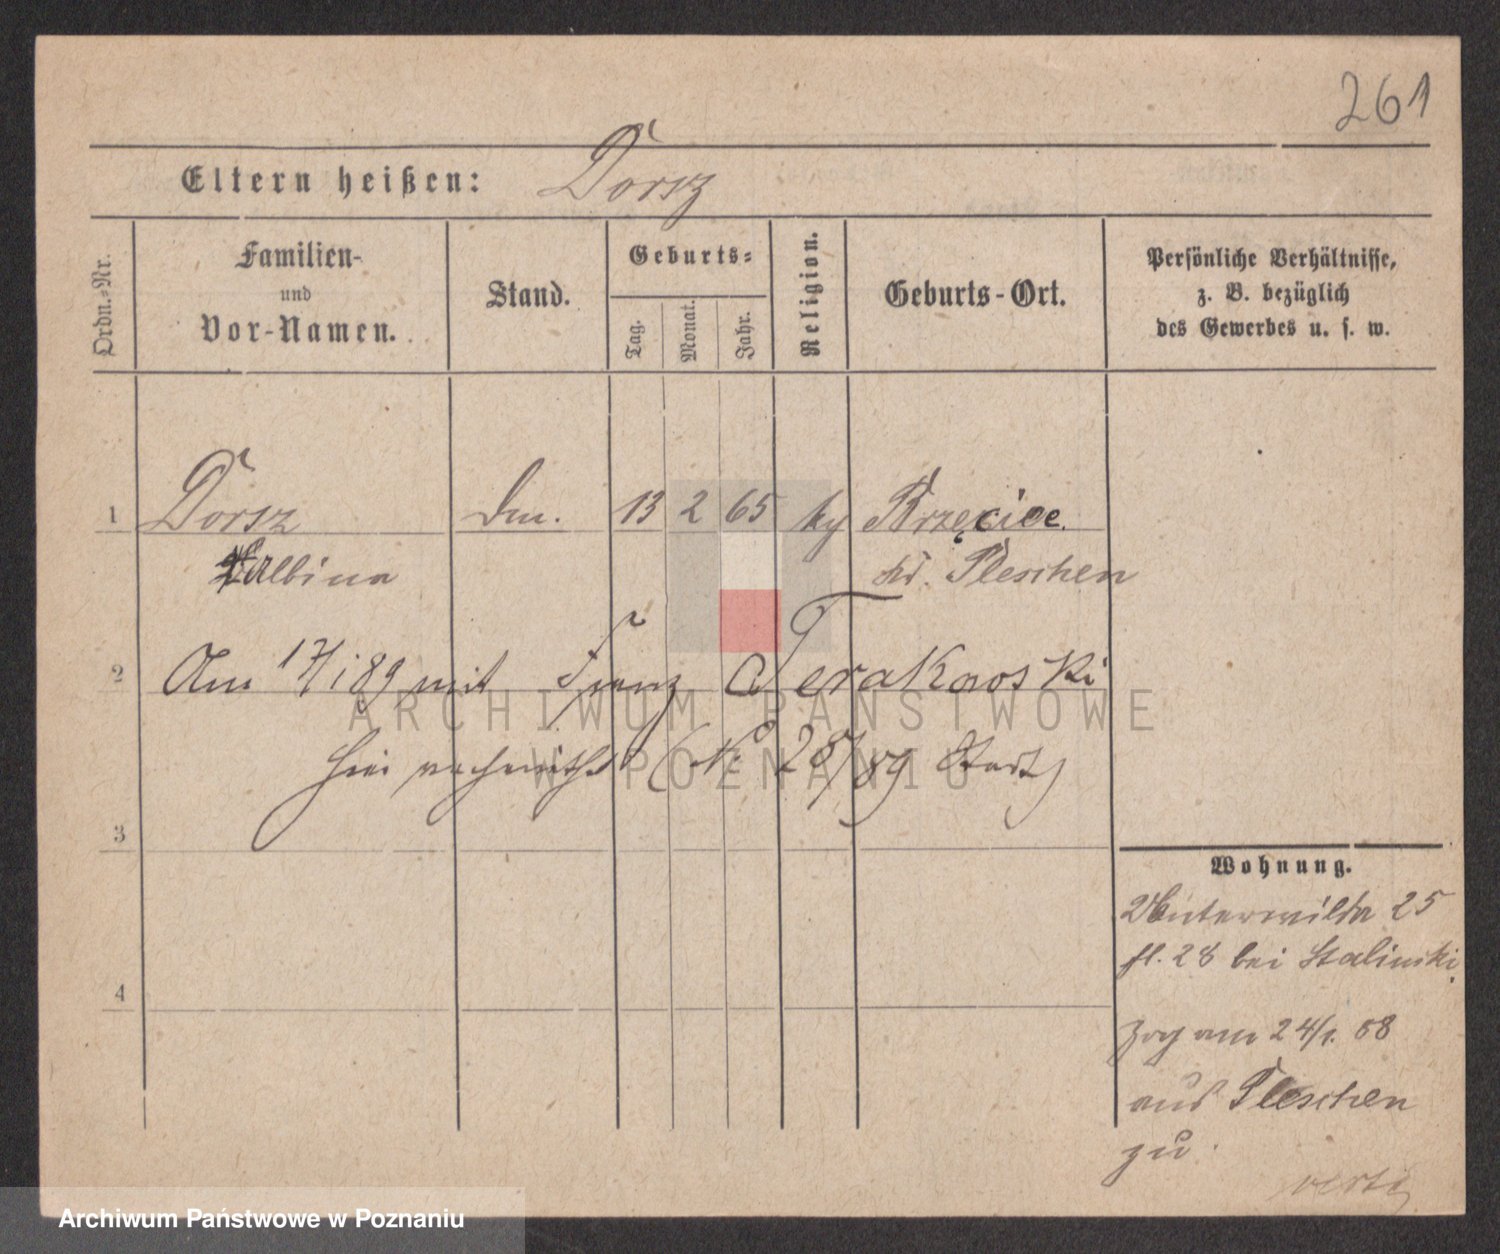 261
Eltern heißen: Dorsz
Ordn.-Nr.
Familien-
und
Vor-Namen.
Stand.
Geburts-
Tag.
Monat.
Jahr.
Religion.
Geburts-Ort.
Persönliche Verhältnisse,
z. B. bezüglich
des Gewerbes u. s. w.
1 Dorsz 13 2 65 Brzęcice
Albina Kr. Pleschen
2 Am 17/1 89 mit Franz
hier verheirathet (No 28/89 Stdt)
3
4
Wohnung.
Unterwilda 25
fl. 28 bei Stalinski
Zog am 24/1. 88
aus Pleschen
zu.
verte
ARCHIWUM PAŃSTWOWE
W POZNANIU
Archiwum Państwowe w Poznaniu